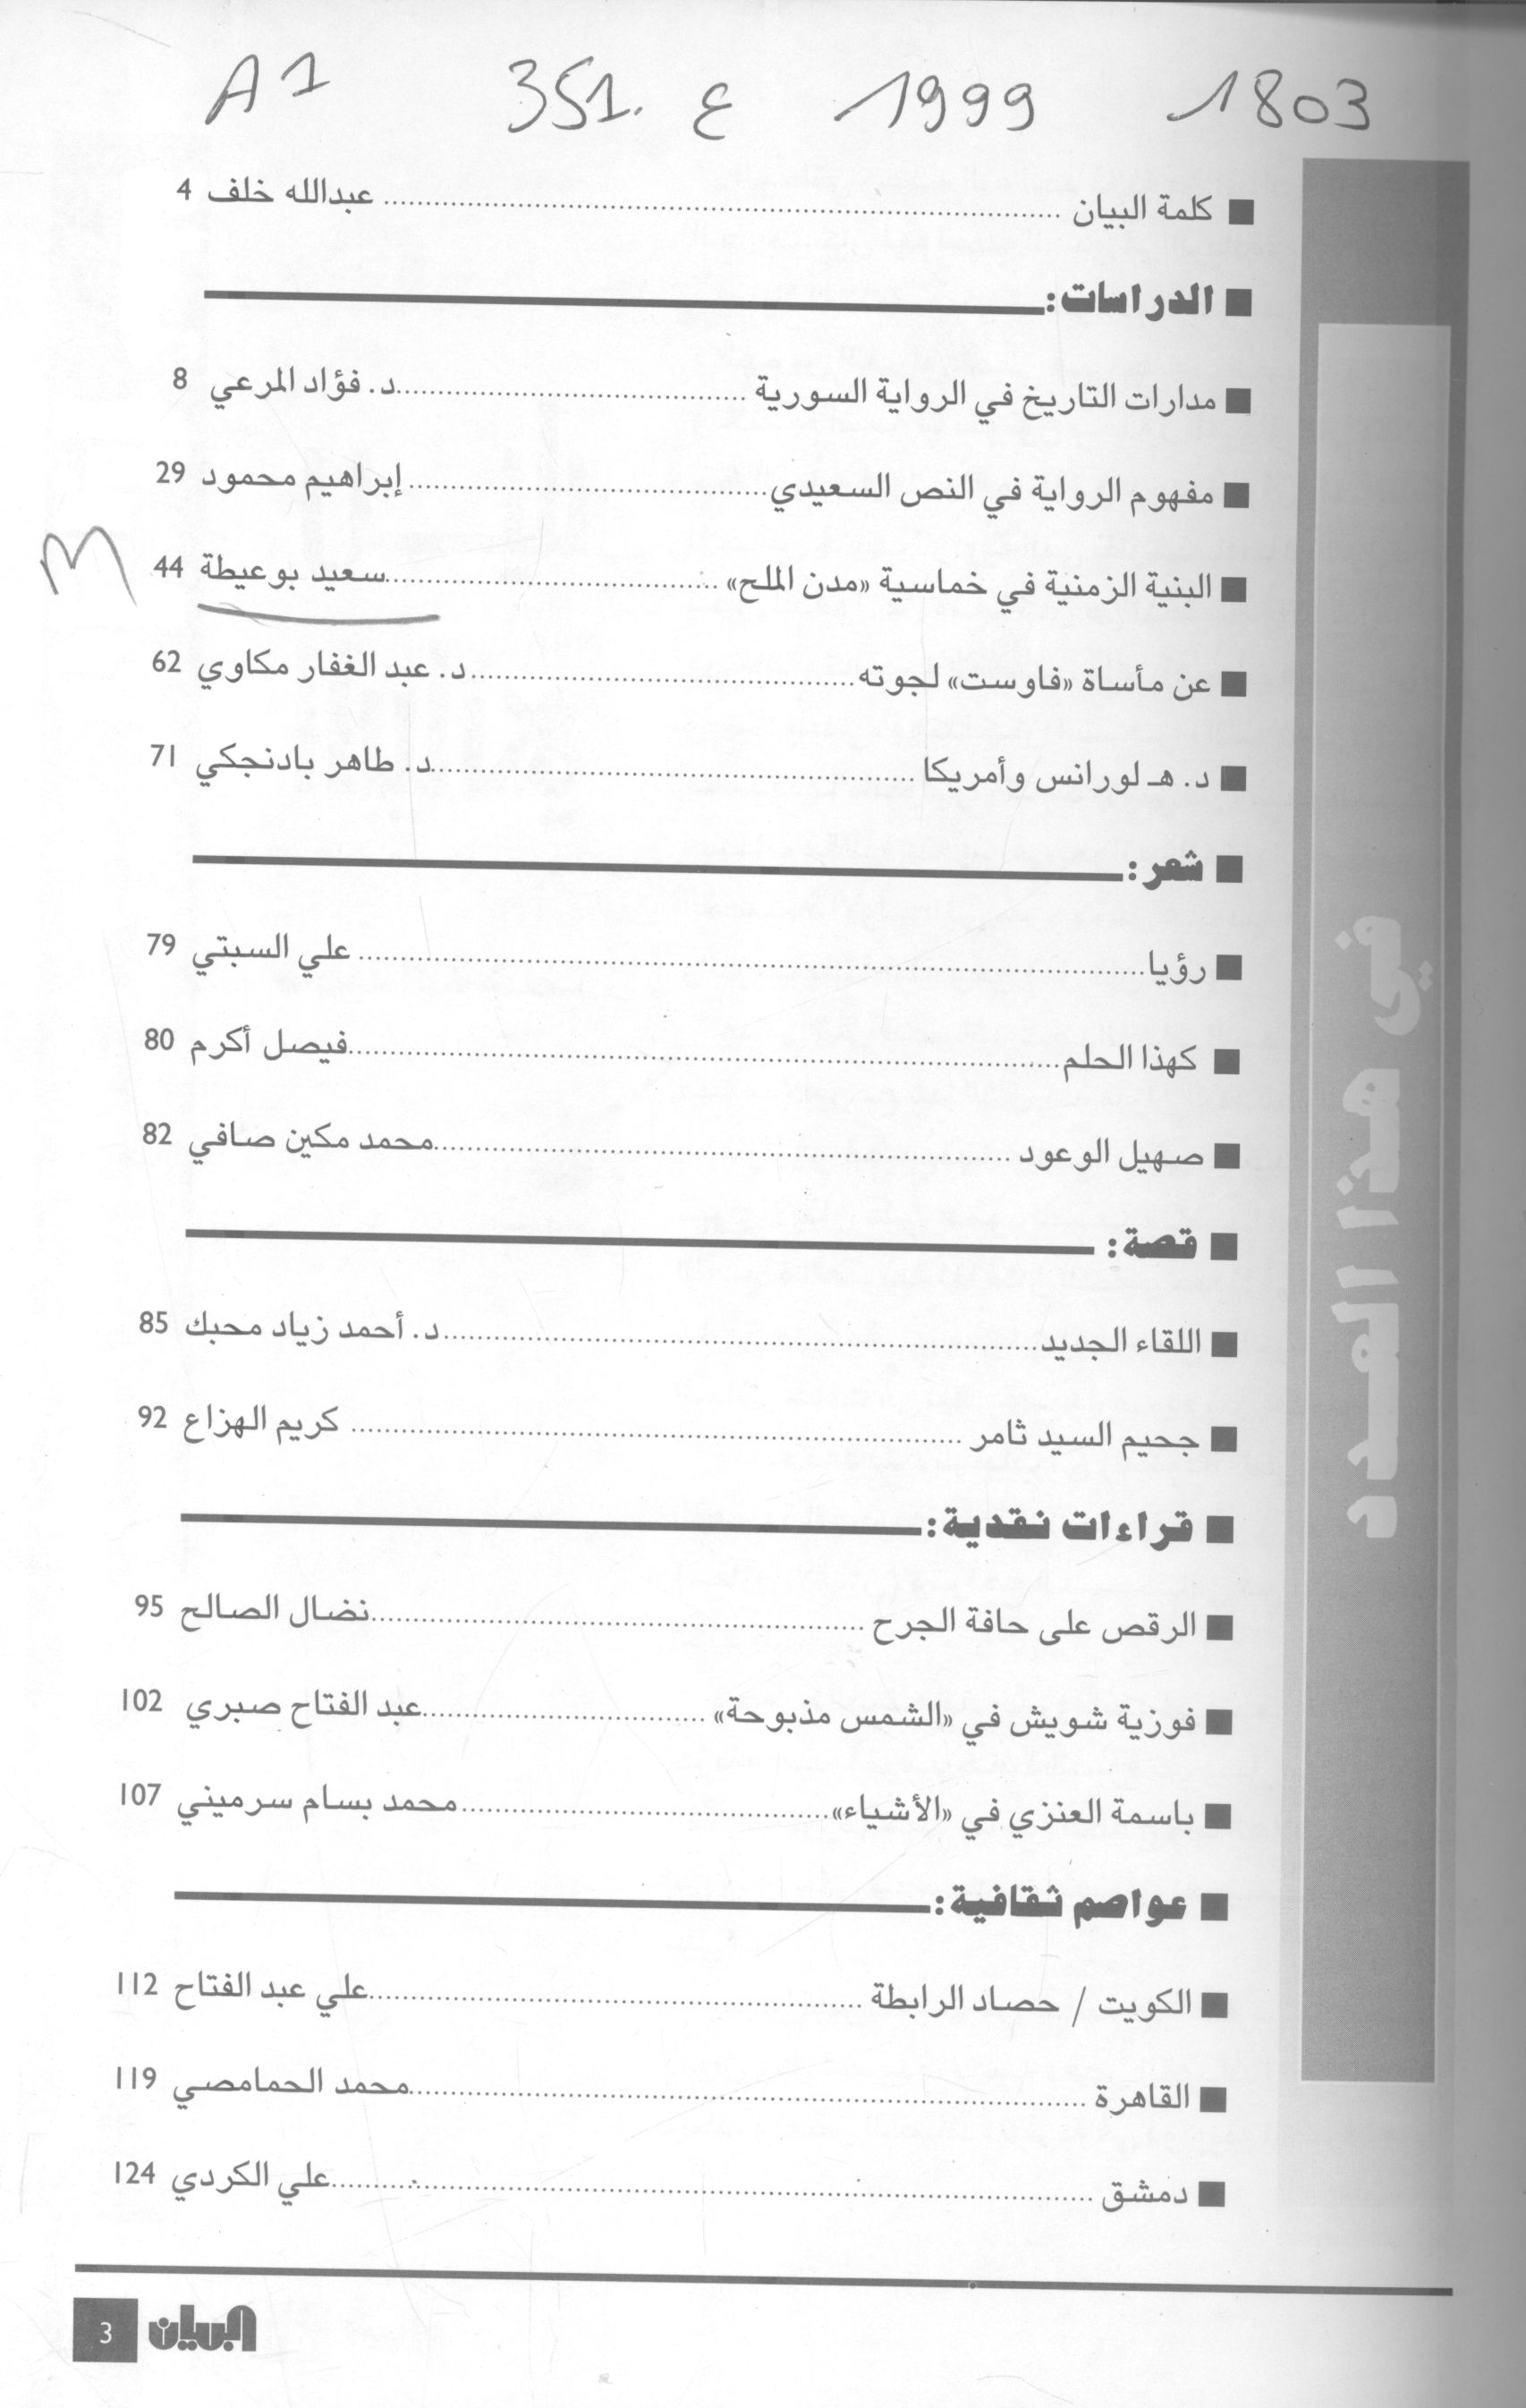 A1 351. ع 1999 1803
■ كلمة البيان ........ عبدالله خلف 4
■ الدراسات:
■ مدارات التاريخ في الرواية السورية ........ د. فؤاد المرعي 8
■ مفهوم الرواية في النص السعيدي ........ إبراهيم محمود 29
M
■ البنية الزمنية في خماسية «مدن الملح» ........ سعيد بوعيطة 44
■ عن مأساة «فاوست» لجوته ........ د. عبد الغفار مكاوي 62
■ د. هـ لورانس وأمريكا ........ د. طاهر بادنجكي 71
■ شعر:
■ رؤيا ........ علي السبتي 79
■ كهذا الحلم ........ فيصل أكرم 80
■ صهيل الوعود ........ محمد مكين صافي 82
■ قصة:
■ اللقاء الجديد ........ د. أحمد زياد محبك 85
■ جحيم السيد ثامر ........ كريم الهزاع 92
■ قراءات نقدية:
■ الرقص على حافة الجرح ........ نضال الصالح 95
■ فوزية شويش في «الشمس مذبوحة» ........ عبد الفتاح صبري 102
■ باسمة العنزي في «الأشياء» ........ محمد بسام سرميني 107
■ عواصم ثقافية:
■ الكويت / حصاد الرابطة ........ علي عبد الفتاح 112
■ القاهرة ........ محمد الحمامصي 119
■ دمشق ........ علي الكردي 124
في هذا العدد
البيان 3